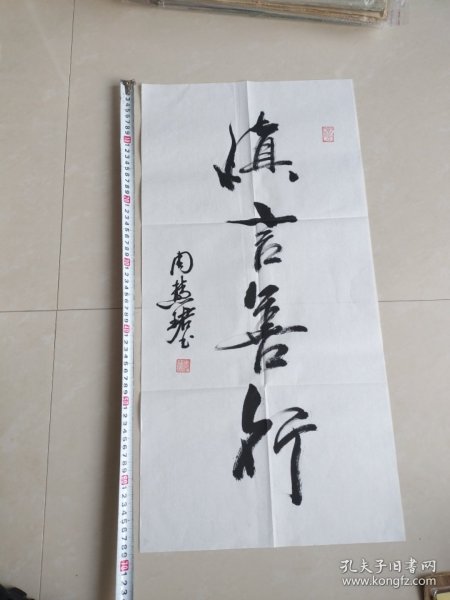 慎言善行
周慧珺书
孔夫子旧书网
www.kongfz.com